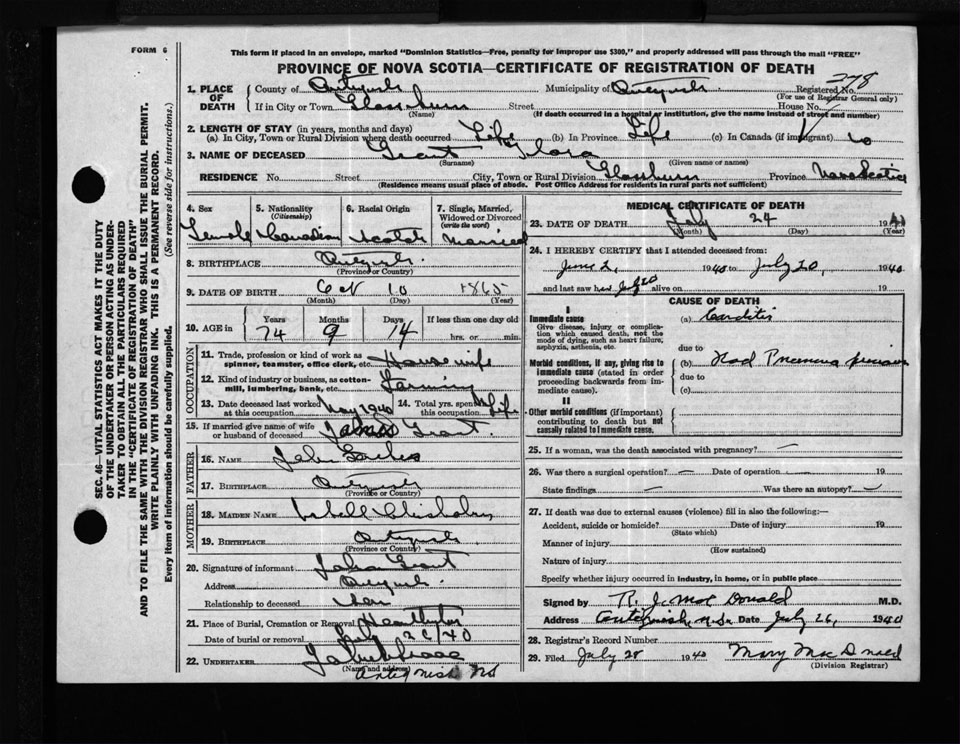 FORM 6
This form if placed in an envelope, marked "Dominion Statistics—Free, penalty for improper use $300," and properly addressed will pass through the mail "FREE"
PROVINCE OF NOVA SCOTIA—CERTIFICATE OF REGISTRATION OF DEATH
278
1. PLACE OF DEATH
County of Antigonish Municipality of Antigonish Registered No.
(For use of Registrar General only)
If in City or Town Glassburn Street House No.
(Name) (If death occurred in a hospital or institution, give the name instead of street and number)
2. LENGTH OF STAY (in years, months and days)
(a) In City, Town or Rural Division where death occurred Life (b) In Province Life (c) In Canada (if immigrant)
3. NAME OF DECEASED Grant Flora
(Surname) (Given name or names)
RESIDENCE No. Street City, Town or Rural Division Glassburn Province Nova Scotia
(Residence means usual place of abode. Post Office Address for residents in rural parts not sufficient)
4. Sex Female
5. Nationality (Citizenship) Canadian
6. Racial Origin Scotch
7. Single, Married, Widowed or Divorced (write the word) Married
8. BIRTHPLACE Antigonish
(Province or Country)
9. DATE OF BIRTH Oct 10 1865
(Month) (Day) (Year)
10. AGE in Years Months Days If less than one day old
74 9 14 hrs. or min.
OCCUPATION
11. Trade, profession or kind of work as spinner, teamster, office clerk, etc. Housewife
12. Kind of industry or business, as cotton-mill, lumbering, bank, etc. Farming
13. Date deceased last worked at this occupation May 1940
14. Total yrs. spent at this occupation Life
15. If married give name of wife or husband of deceased James Grant
FATHER
16. NAME John
17. BIRTHPLACE Antigonish
(Province or Country)
MOTHER
18. MAIDEN NAME Isbell Chisholm
19. BIRTHPLACE Antigonish
(Province or Country)
20. Signature of informant Grant
Address Antigonish
Relationship to deceased
21. Place of Burial, Cremation or Removal Heatherton
Date of burial or removal July 26/40
22. UNDERTAKER
(Name and address)
Antigonish NS
MEDICAL CERTIFICATE OF DEATH
23. DATE OF DEATH July 24 1940
(Month) (Day) (Year)
24. I HEREBY CERTIFY that I attended deceased from:
June 2, 1940 to July 20, 1940
and last saw her July 20 alive on 19
CAUSE OF DEATH
I
Immediate cause
Give disease, injury or complication which caused death, not the mode of dying, such as heart failure, asphyxia, asthenia, etc.
(a) Carditis
due to
Morbid conditions, if any, giving rise to immediate cause (stated in order proceeding backwards from immediate cause).
(b) Had Pneumonia previous
due to
(c)
II
Other morbid conditions (if important) contributing to death but not causally related to immediate cause.
25. If a woman, was the death associated with pregnancy? —
26. Was there a surgical operation? — Date of operation — 19
State findings — Was there an autopsy? —
27. If death was due to external causes (violence) fill in also the following:—
Accident, suicide or homicide? Date of injury 19
(State which)
Manner of injury
(How sustained)
Nature of injury
Specify whether injury occurred in industry, in home, or in public place
Signed by R. J. MacDonald M.D.
Address Antigonish, N.S. Date July 26, 1940
28. Registrar's Record Number
29. Filed July 28 1940 Mary MacDonald
(Division Registrar)
SEC. 46—VITAL STATISTICS ACT MAKES IT THE DUTY
OF THE UNDERTAKER OR PERSON ACTING AS UNDER-
TAKER TO OBTAIN ALL THE PARTICULARS REQUIRED
IN THE "CERTIFICATE OF REGISTRATION OF DEATH"
AND TO FILE THE SAME WITH THE DIVISION REGISTRAR WHO SHALL ISSUE THE BURIAL PERMIT.
WRITE PLAINLY WITH UNFADING INK. THIS IS A PERMANENT RECORD.
Every item of information should be carefully supplied. (See reverse side for instructions.)